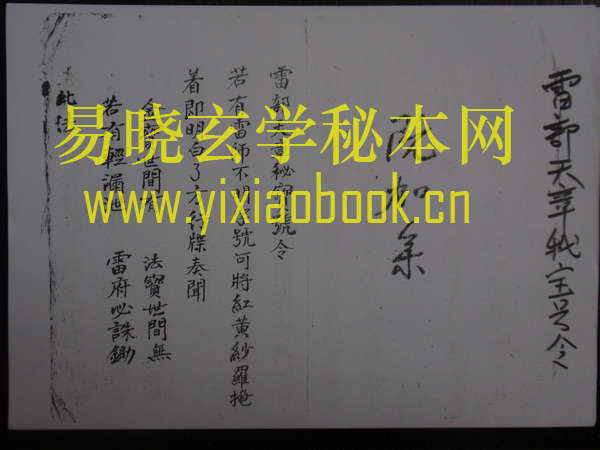 雷部天章秘宝号令
雷部天章秘寶號令
若有雷師不明字號可將紅黃紗羅掩
着即明白了方行牒奏聞
世間有 法寶世間無
若有輕漏泄 雷府必誅鋤
易晓玄学秘本网
www.yixiaobook.cn